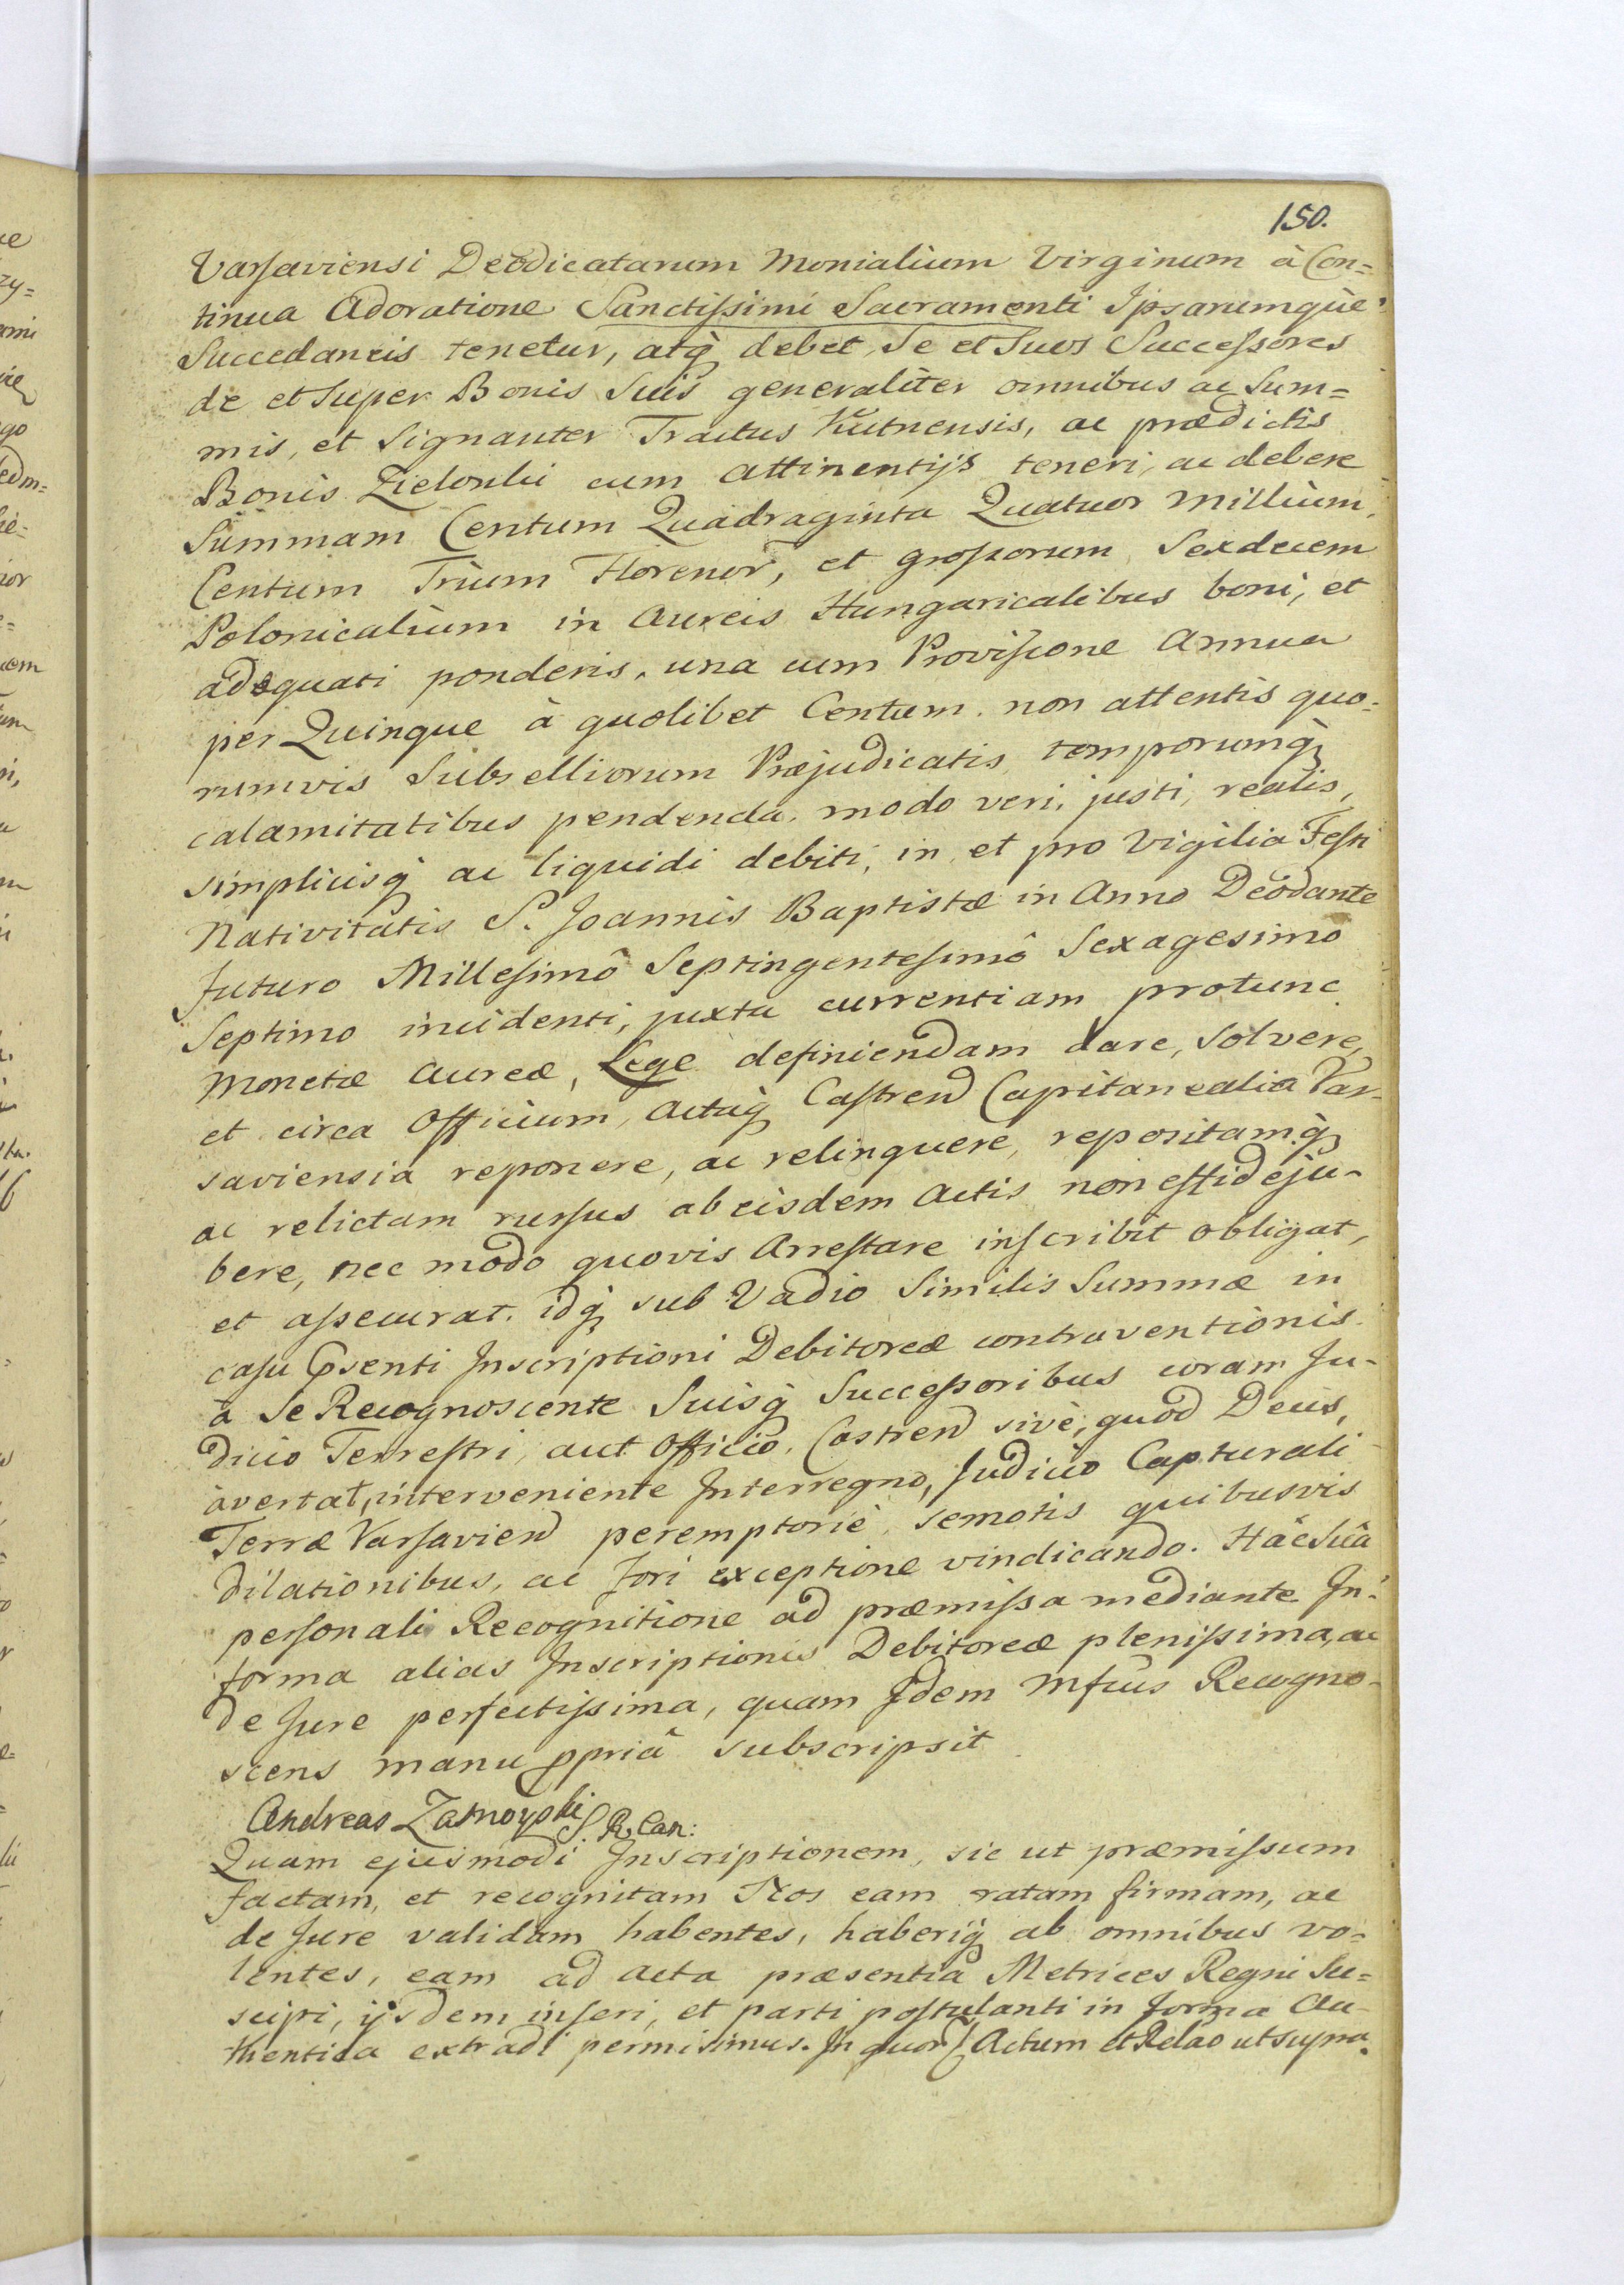 150.
Varsaviensi Deodicatarum Monialium Virginum à Con=
tinua Adoratione Sanctissimi Sacramenti Ipsarumque
Succedaneis tenetur, atq debet, Se et Suos Successores
de et Super Bonis Suis generaliter omnibus ac Sum=
mis, et Signanter Tractus Kutnensis, ac prædictis
Bonis Zielonki cum attinentijs teneri, ac debere
Summam Centum Quadraginta Quatuor Millium,
Centum Trium Florenor, et grossorum Sexdecem
Polonicalium in Aureis Hungaricalibus boni, et
adequati ponderis, una cum Provisione Annua
per Quinque à quolibet Centum. non attentis quo-
rumvis Subselliorum Præjudicatis, temporumq
calamitatibus pendenda. modo veri, justi, realis,
simplicisq ac liquidi debiti, in et pro Vigilia Festi
Nativitatis S. Joannis Baptistæ in Anno Deodante
futuro Millesimô Septingentesimô Sexagesimô
Septimo incidenti, juxta currentiam protunc
Monetæ Aureæ, Lege definiendam dare, Solvere,
et circa Officium, Actaq Castren Capitanealia Var-
saviensia reponere, ac relinquere, repositamq
ac relictam rursus ab eisdem Actis non estideju-
bere, nec modo quovis Arrestare inscribit obligat,
et assecurat. idq sub Vadio Similis Summæ in
casu Psenti Inscriptioni Debitoreæ contraventionis
à Se Recognoscente Suisq Successoribus coram Ju-
dicio Terrestri, aut Officio Castren sivè, quod Deus,
avertat, interveniente Interregno, Judicio Capturali
Terræ Varsavien peremptoriè, semotis quibusvis
dilationibus, ac fori exceptione vindicando. Hâc Suâ
personali Recognitione ad præmissa mediante In-
forma alias Inscriptionis Debitoreæ plenissima, ac
de Jure perfectissima, quam Idem Mfcus Recogno-
scens manu ppriâ subscripsit
Andreas Zamoyski S R. Can:
Quam ejusmodi Inscriptionem, sic ut præmissum
factam, et recognitam Nos eam ratam firmam, ac
de Jure validam habentes, haberiq ab omnibus vo-
lentes, eam ad Acta præsentia Metrices Regni Su=
scipi, ijsdem inseri, et parti postulanti in forma Au-
thentica extradi permisimus. In quor Actum et Relao ut supra.